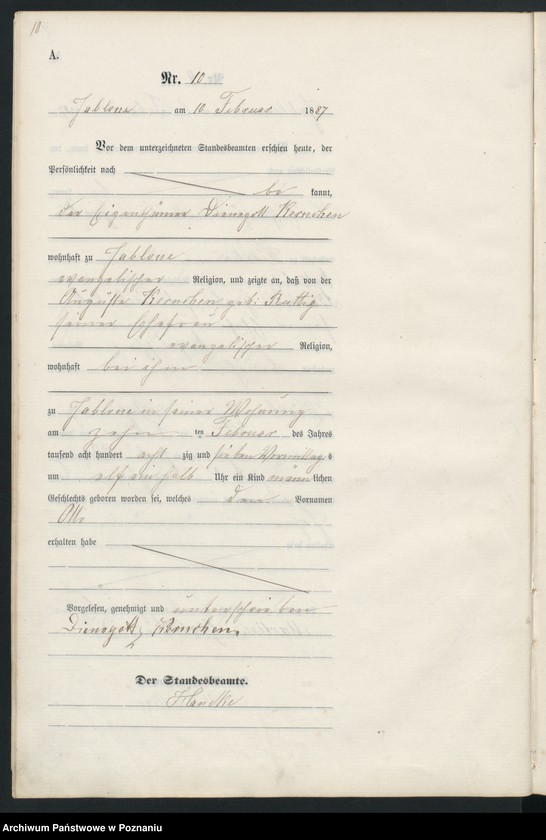 10
A.
Nr. 10
Jablone am 10 Februar 1887
Vor dem unterzeichneten Standesbeamten erschien heute, der
Persönlichkeit nach
be kannt,
der Eigenthümer Dienegott Kernchen
wohnhaft zu Jablone
evangelischer Religion, und zeigte an, daß von der
Auguste Kernchen geb: Rattig
seiner Ehefrau
evangelischer Religion,
wohnhaft bei ihm
zu Jablone in seiner Wohnung
am zehn ten Februar des Jahres
tausend acht hundert acht zig und sieben Vormittag s
um elf ein halb Uhr ein Kind männ lichen
Geschlechts geboren worden sei, welches den Vornamen
Otto
erhalten habe
Vorgelesen, genehmigt und unterschrieben
Dienegott Kernchen.
Der Standesbeamte.
Handke
Archiwum Państwowe w Poznaniu